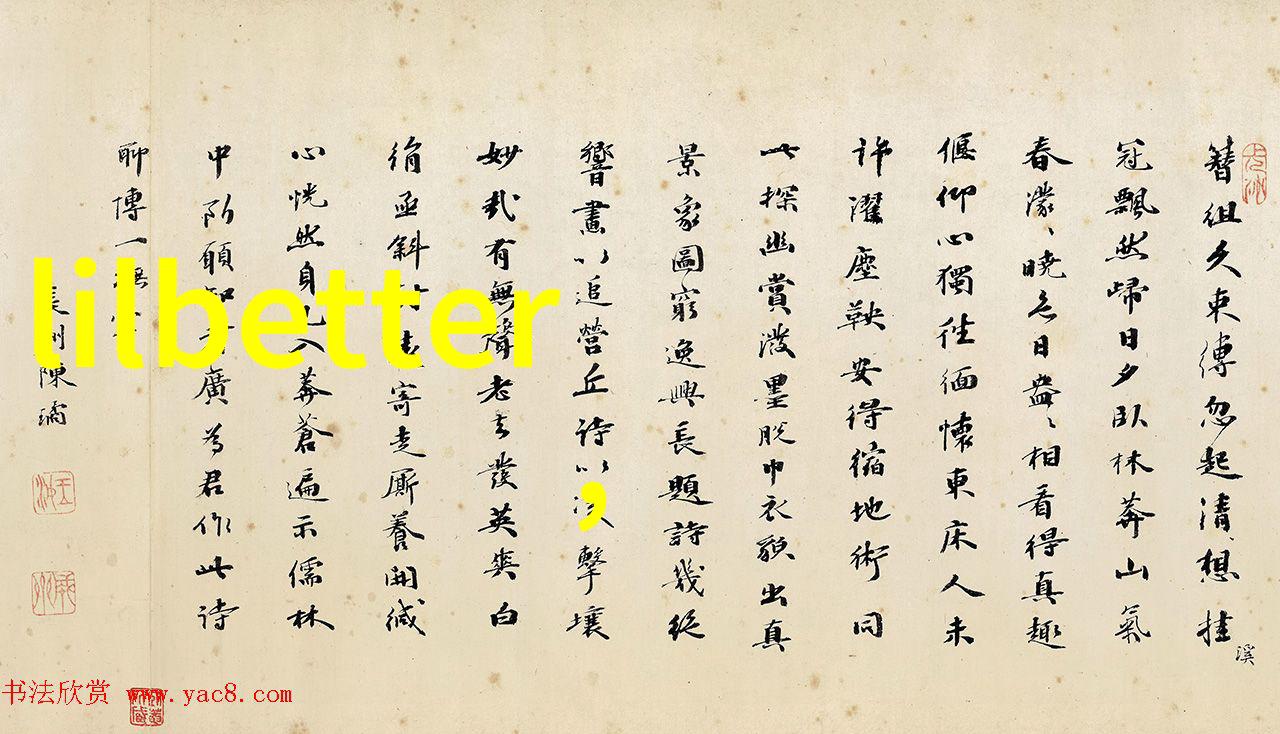 簪組久束縛忽起清想挂
冠飄然歸日夕卧林莽山氣
春濛〻曉色日盎〻相看得真趣
偃仰心獨往緬懷東床人未
許濯塵鞅安得縮地術同
此探幽賞潑墨脫巾衣貌出真
景象圖窮逸興長題詩幾絕
響畫以追營丘詩以 擊壤
妙哉有無聲老去發英爽白
絹亟斜 寄走厮養開緘
心恍然身已入莽蒼遍示儒林
中所願知 廣為君作此詩
聊博一
長洲陳璚
溪
lilbetter
,
书法欣赏 www.yac8.com